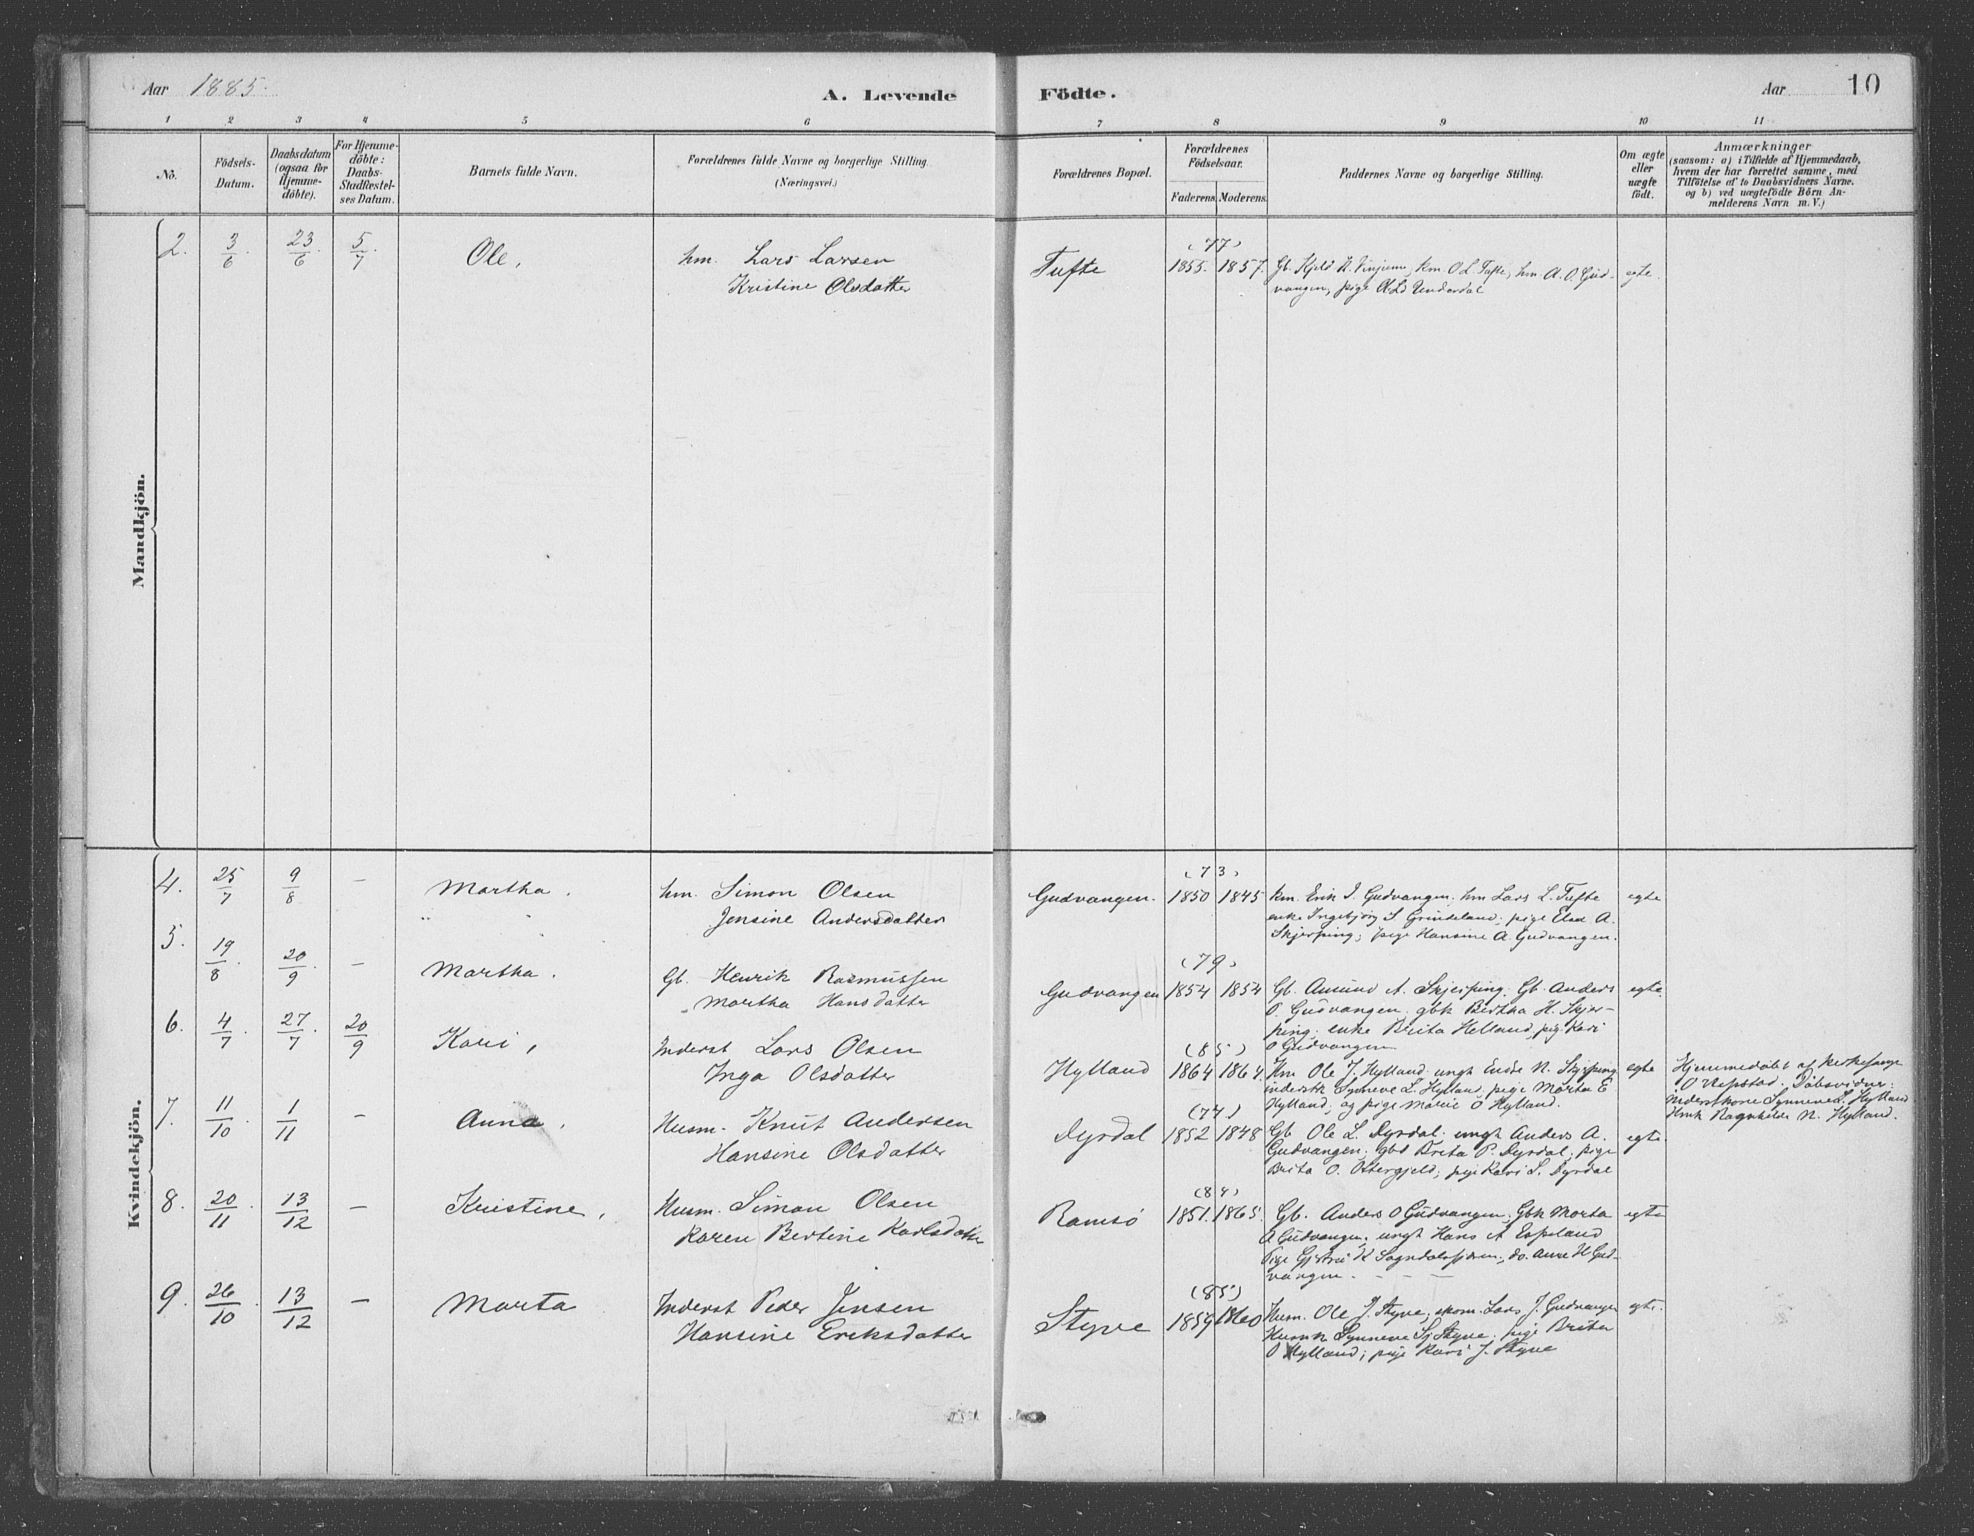 Aar 1885.
A. Levende Födte.
Aar 10
1 2 3 4 5 6 7 8 9 10 11
No.
Födsels-Datum.
Daabsdatum (ogsaa for Hjemme-döbte).
For Hjemme-döbte: Daabs-Stadfæstel-ses Datum.
Barnets fulde Navn.
Forældrenes fulde Navne og borgerlige Stilling. (Næringsvei.)
Forældrenes Bopæl.
Forældrenes Födselsaar.
Faderens. Moderens.
Faddernes Navne og borgerlige Stilling.
Om ægte eller uægte födt.
Anmærkninger
(saasom: a) i Tilfælde af Hjemmedaab,
hvem der har forrettet samme, med
Tilföielse af to Daabsvidners Navne.
og b) ved uægtefödte Börn An-
melderens Navn m. V.)
Mandkjön.
2. 3/6 23/6. 5/7. Ole, hm. Lars Larsen
Kristine Olsdatter
Tufte (77) 1855. 1857. Gb. Kjeld N. Vinjum, km. O L. Tufte, hm. A. O. Gud- egte.
vangen, pige Underdal
Kvindekjön.
4. 25/7 9/8 — Martha. hm. Simon Olsen
Jensine Andersdatter
Gudvangen. (73) 1850 1845 km. Erik I. Gudvangen, hm Lars L. Tufte egte
enke Ingebjörg S. Grindeland, pige Elsa A.
Skjerping, pige Hansine A. Gudvangen.
5. 19/8. 20/9. — Martha. Gb. Henrik Rasmussen
Martha Hansdatter
Gudvangen (79) 1854 1854 Gb. Amund A. Skjerping. Gb. Anders egte.
O. Gudvangen, gbk Bertha H. Skjer-
ping, enke Brita Helland, pig. Kari
O Gudvangen
6. 4/7. 27/7. 20/9 Kari, Inderst Lars Olsen
Inga Olsdatter
Hylland (85) 1864 1864. Km Ole J. Hylland, ungk Endre N. Skjerping egte
inderstk Synneve L. Hylland, pige Marta E
Hylland, og pige Marie O Hylland.
Hjemmedöbt af kirkesanger
O Nepstad. Döbsvidner:
Inderstkone Synneve L. Hylland
Hmk Ragnhilde N. Hylland.
7. 11/10 1/11 — Anna, Husm. Knut Andersen
Hansine Olsdatter
Dyrdal (74) 1852 1848 Gb. Ole L. Dyrdal, ungk Anders A. egte.
Gudvangen, Brita P. Dyrdal, pige
Brita O. pige Kari L. Dyrdal
8. 20/11 13/12 — Kristine, Husm. Simon Olsen
Karen Bertine Karlsdatter
Ramsö (84) 1851. 1865. Gb. Anders O Gudvangen, Gbk Marta egte
A Gudvangen, ungk Hans A Espeland
Pige K Sogndalsfjæren, do. Anne H Gud-
vangen. — — —
9. 26/10. 13/12 — Marta Inderst Peder Jensen
Hansine Eriksdatter
Styve (85) 1859 1860 Husm. Ole J. Styve, Lars J. Gudvangen egte.
Husmk Synneve Styve, pige Brita
O Hylland, pige Kari J. Styve